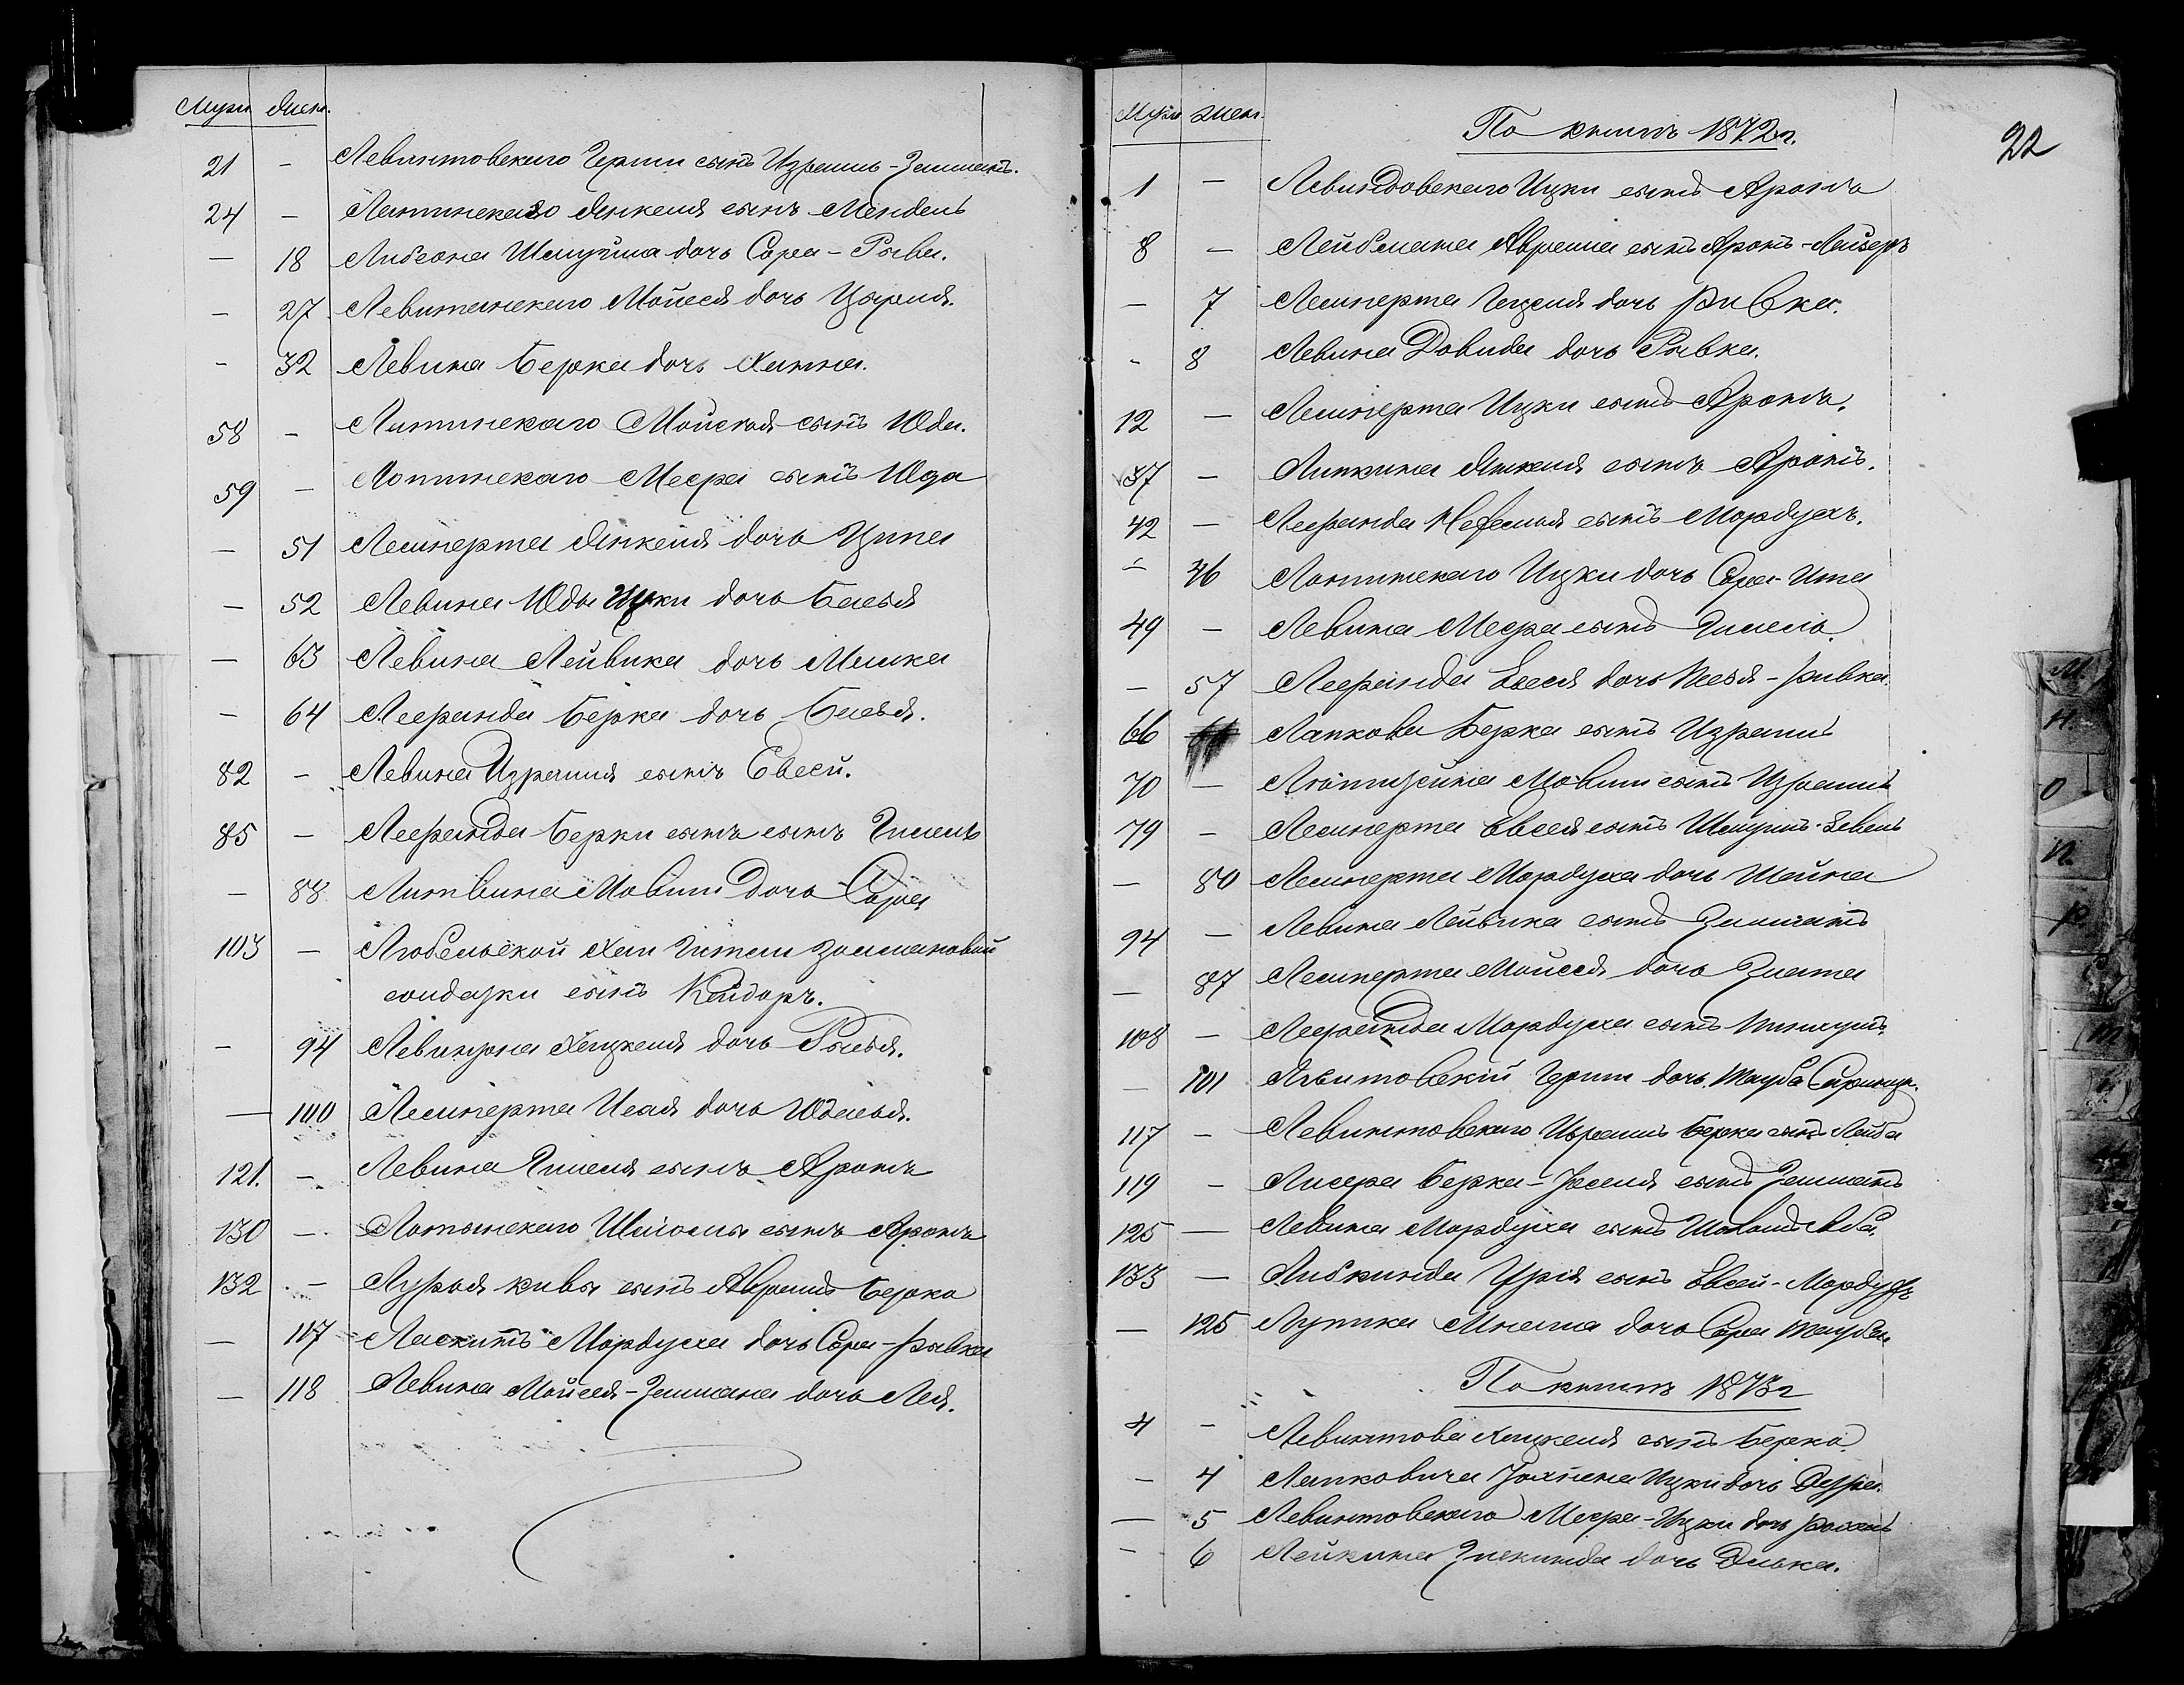 Муж. Жен.
21 - Левинтовскаго Герши сынъ Израиль-Залманъ.
24 - Латинскаго Янкеля сынъ Мендель
- 18 Либсона Шмуйла дочь Сора-Рыва.
- 27 Левитанскаго Мойсея дочь Цырля.
- 32 Левина Берка дочь Хатна.
58 - Литинскаго Мойсея сынъ Юда.
59 - Лопинскаго Меера сынъ Юда
- 51 Лемперта Янкеля дочь Ципа
- 52 Левина Юды Ицки дочь Басья
- 63 Левина Лейвика дочь Машка
- 64 Лееранда Берка дочь Басья.
82 - Левина Израиля сынъ Евсей.
85 - Лееранда Берки сынъ сынъ Гилель
- 88 Литвина Мовши дочь Сора
103 - Любельской Хаи Гители Залмановой
солдатки сынъ Кейдоръ.
- 94 Левинсона Хацкеля дочь Рысья.
- 100 Лемперта Исая дочь Юдасья.
121. - Левина Гилеля сынъ Аронъ
130 - Лотынскаго Шліомы сынъ Аронъ
132 - Лурья Кивы сынъ Абрамъ Берко
- 117 Ласкинъ Мордуха дочь Сора-Рывка
- 118 Левина Мойсея-Залмана дочь Лея.
Муж. Жен.
По книгѣ 1872 г.
22
1 - Левиндовскаго Ицки сынъ Аронъ
8 - Лейбмана Абрама сынъ Аронъ-Лейзеръ
- 7 Лемперта Гецеля дочь Ривка.
- 8 Левина Довида дочь Рывка.
12 - Лемперта Ицки сынъ Аронъ.
37 - Липкина Янкеля сынъ Аронъ.
42 - Лееранда сынъ Мордухъ.
- 46 Лопинскаго Ицки дочь Сора-Ита
49 - Левина Меера сынъ Гилель.
- 57 Лееранда Евсея дочь -Ривка.
66 Лапкова Берка сынъ Израиль
70 - Мовши сынъ Израиль
79 - Лемперта Евсея сынъ Шмуилъ-Зевель
- 80 Лемперта Мордуха дочь Шейна
94 - Левина Лейвика сынъ Залманъ
- 87 Лемперта Мойсея дочь Злата
108 - Лееранда Мордуха сынъ
- 101 Левитовскій Герши дочь Тауба
117 - Левинтовскаго Израиль Берка сынъ Лейба
119 - Лисера Берка-Іоселя сынъ Залманъ
125 - Левина Мордуха сынъ
133 - Либкинда Урія сынъ Евсей-Мордухъ
- 125 Лупика дочь Сора Тауба
По книгѣ 1873 г
4 - Левинтова Хацкеля сынъ Берко
- 4 Лапковича Ицки дочь
- 5 Левинтовскаго Меера-Ицки дочь Рохль
- 6 Лейкина Зискинда дочь Элька.
М.
Н.
О
П.
Р.